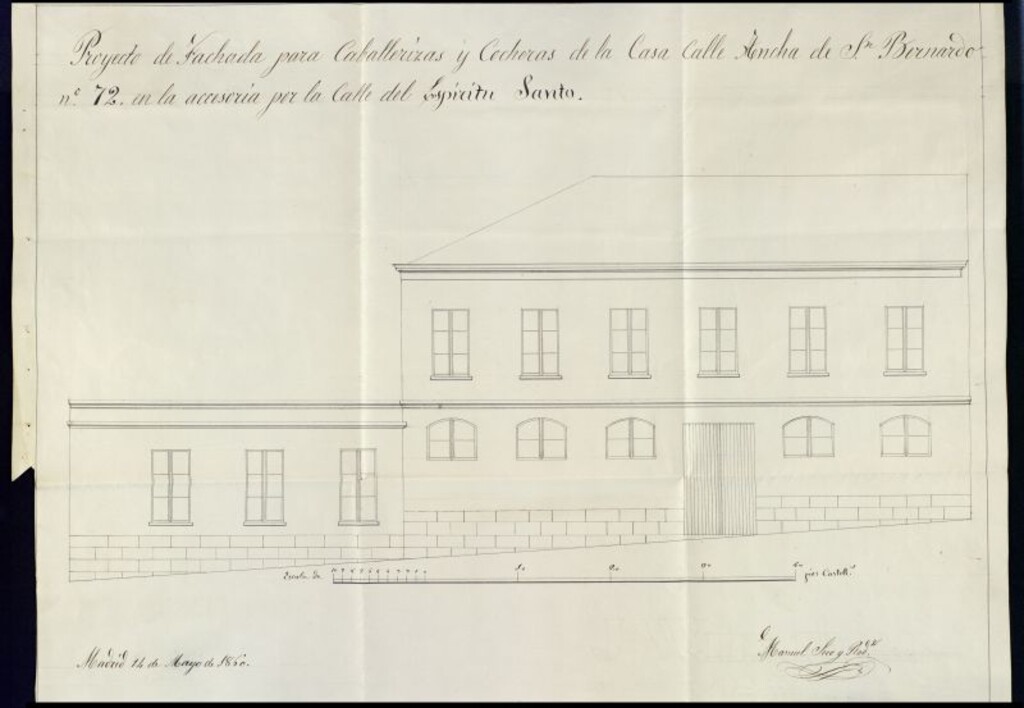 Proyecto de Fachada para Caballerizas y Cocheras de la Casa Calle Ancha de Sn. Bernardo
nº 72. en la accesoria por la Calle del Espiritu Santo.
Escala de pies Castells.
Madrid 14 de Mayo de
Manuel Seco y